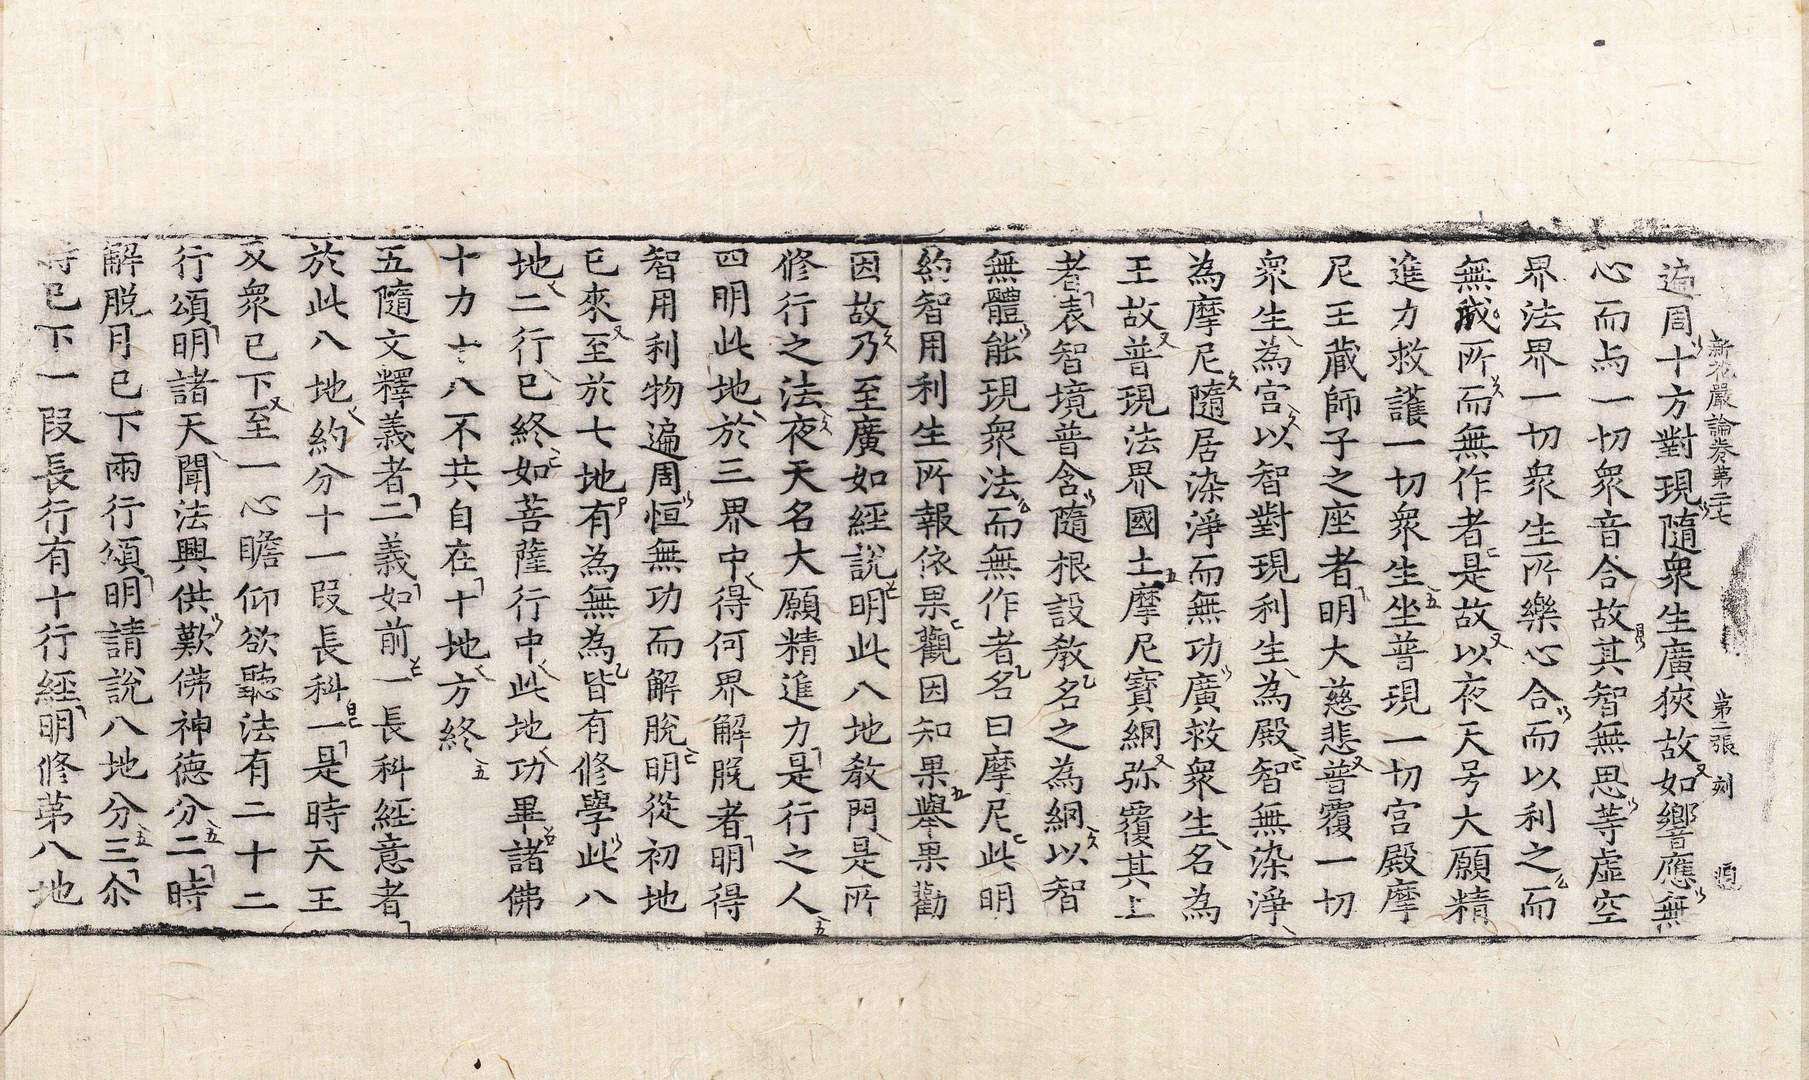 新花嚴論卷第二十七 第二張 刻
遍周十方對現隨衆生廣狹故如響應無
心而与一切衆音合故其智無思等虛空
界法界一切衆生所樂心合而以利之而
無成所而無作者是故以夜天号大願精
進力救護一切衆生坐普現一切宮殿摩
尼王藏師子之座者明大慈悲普覆一切
衆生為宮以智對現利生為殿智無染淨
為摩尼隨居染淨而無功廣救衆生名為
王故普現法界國土摩尼寶網弥覆其上
者表智境普含隨根設教名之為網以智
無體能現衆法而無作者名曰摩尼此明
約智用利生所報依果觀因知果舉果勸
因故乃至廣如經說明此八地教門是所
修行之法夜天名大願精進力是行之人
四明此地於三界中得何界解脫者明得
智用利物遍周恒無功而解脫明從初地
已來至於七地有為無為皆有修學此八
地二行已終如菩薩行中此地功畢諸佛
十力十八不共自在十地方終
五隨文釋義者二義如前一長科經意者
於此八地約分十一段長科一是時天王
及衆已下至一心瞻仰欲聽法有二十二
行頌明諸天聞法興供歎佛神德分二時
解脫月已下兩行頌明請說八地分三尒
時已下一段長行有十行經明修第八地